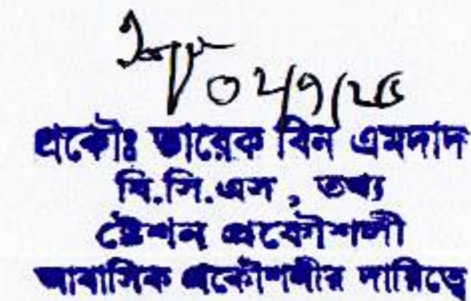 ০২/৭/২৫
প্রকৌঃ তারেক বিন এমদাদ
বি.সি.এস , তথ্য
ষ্টেশন প্রকৌশলী
আবাসিক প্রকৌশলীর দায়িত্বে